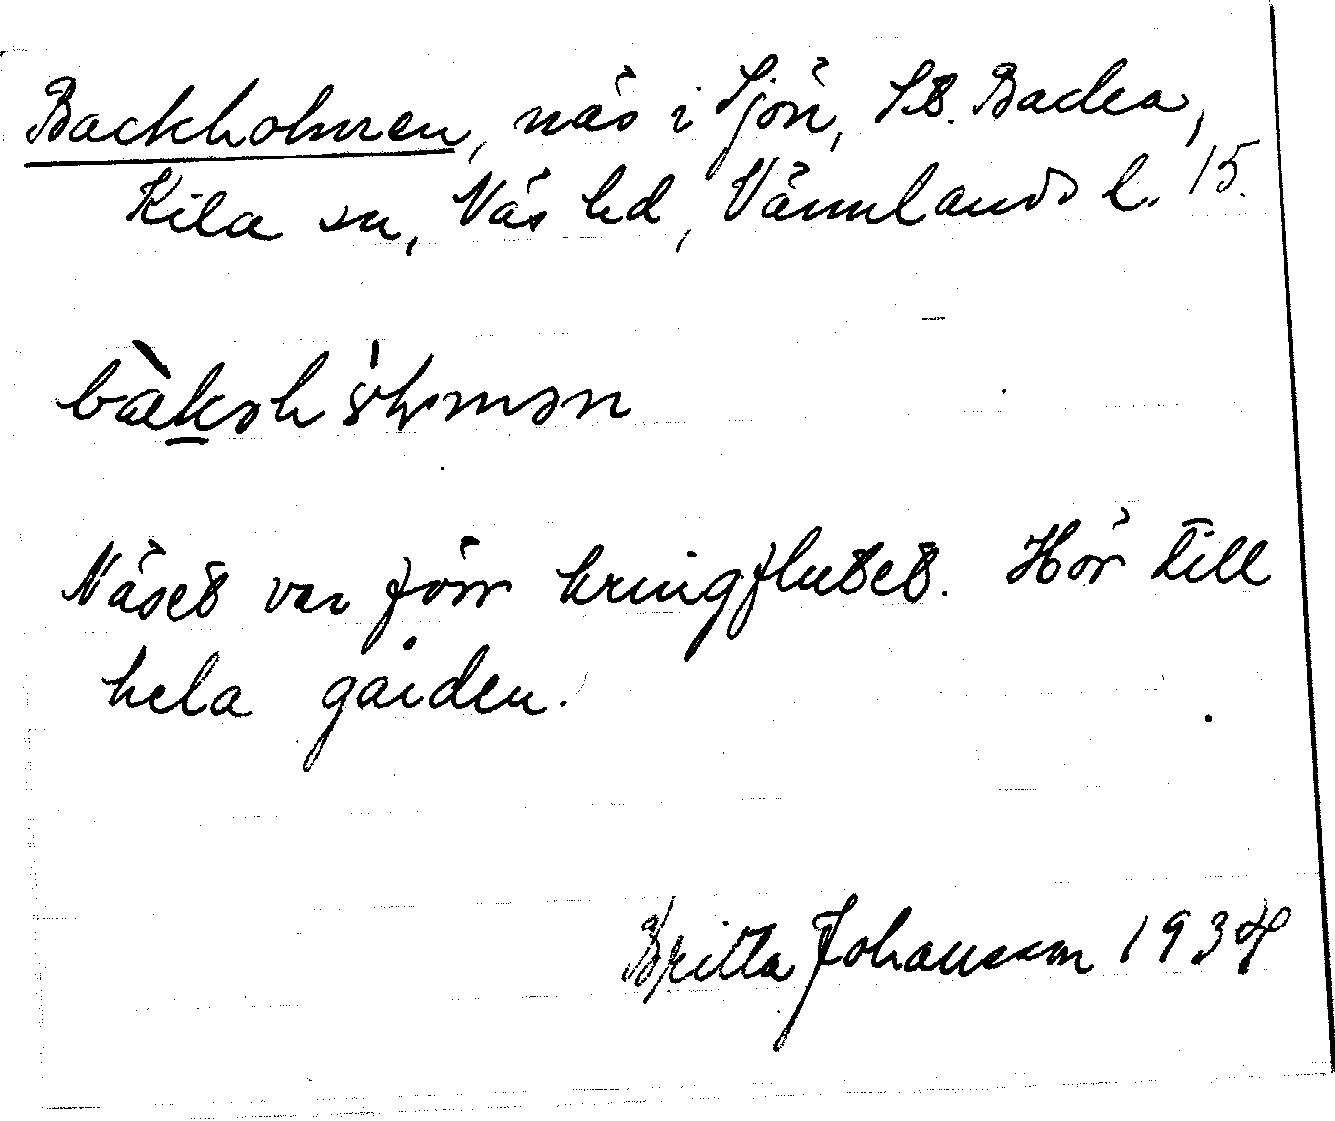 Backholmen, näs i Sjön, St. Backa,
Kila sn, Näs hd, Värmlands l. 15.
Näset var förr kringflutet. Hör till
hela gården.
Britta Johansson 1934